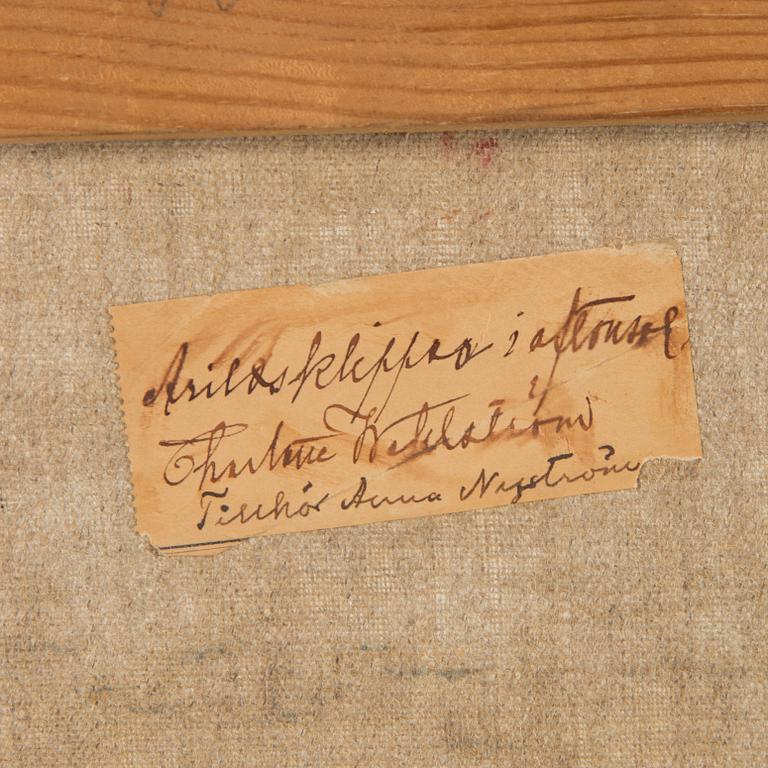 Arildsklippor i aftonsol.
Charlotte Wahlström
Tillhör Anna Nyström